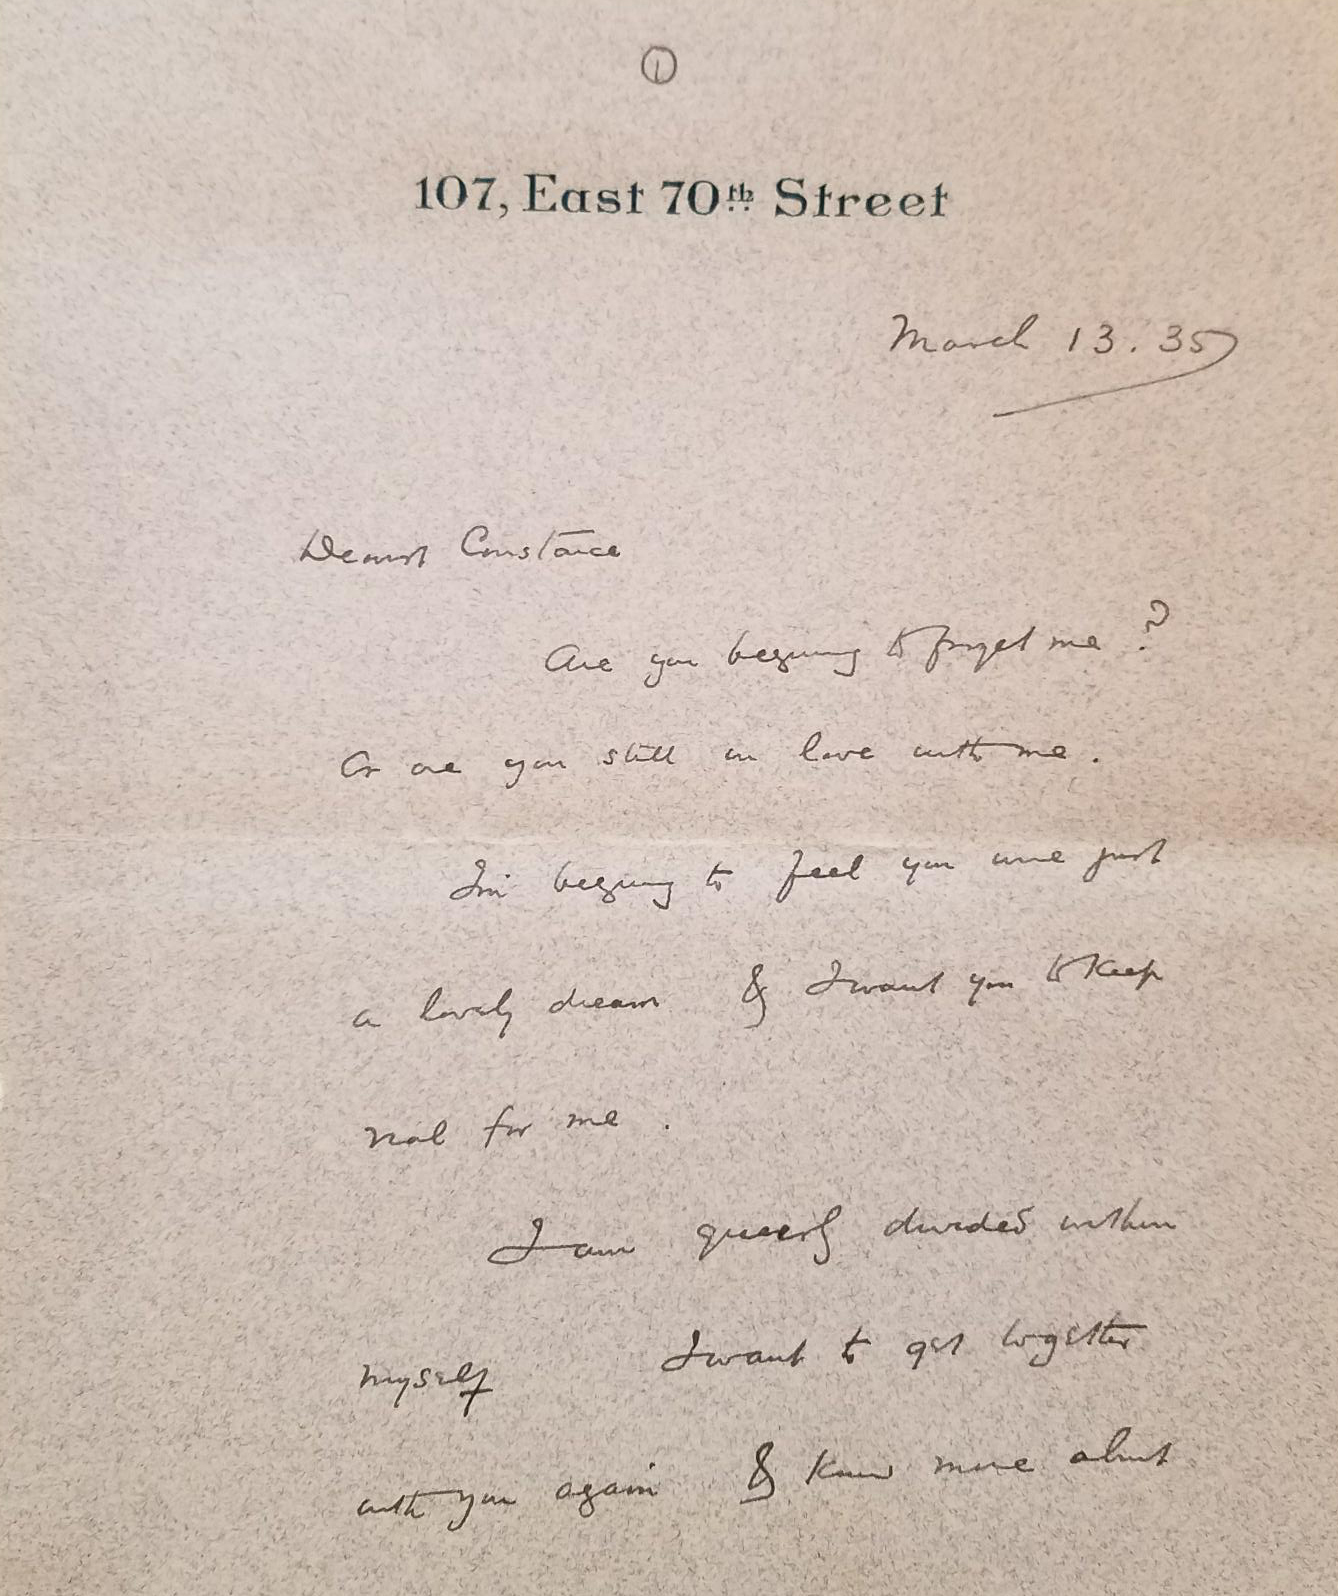 1
107, East 70th Street
March 13. 35
Dearest Constance
Are you begining to forget me ?
Or are you still in love with me .
I'm begining to feel you were just
a lovely dream & I want you to keep
real for me .
I am queerly divided within
myself I want to get together
with you again & know more about